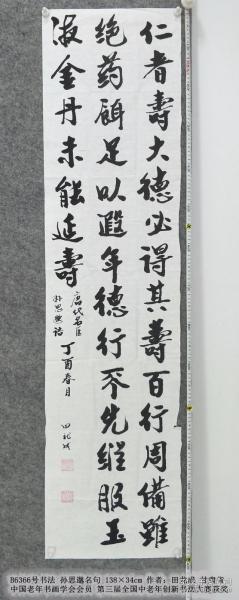 仁者壽大德必得其壽百行周備雖
绝药餌足以遐年德行不先縱服玉
液金丹未能延壽
唐代名医
孙思邈语
丁酉春月
B6366号书法 孙思邈名句 138×34cm 作者：田龙成 甘肃省
中国老年书画学会会员 第三届全国中老年创新书法大赛获奖